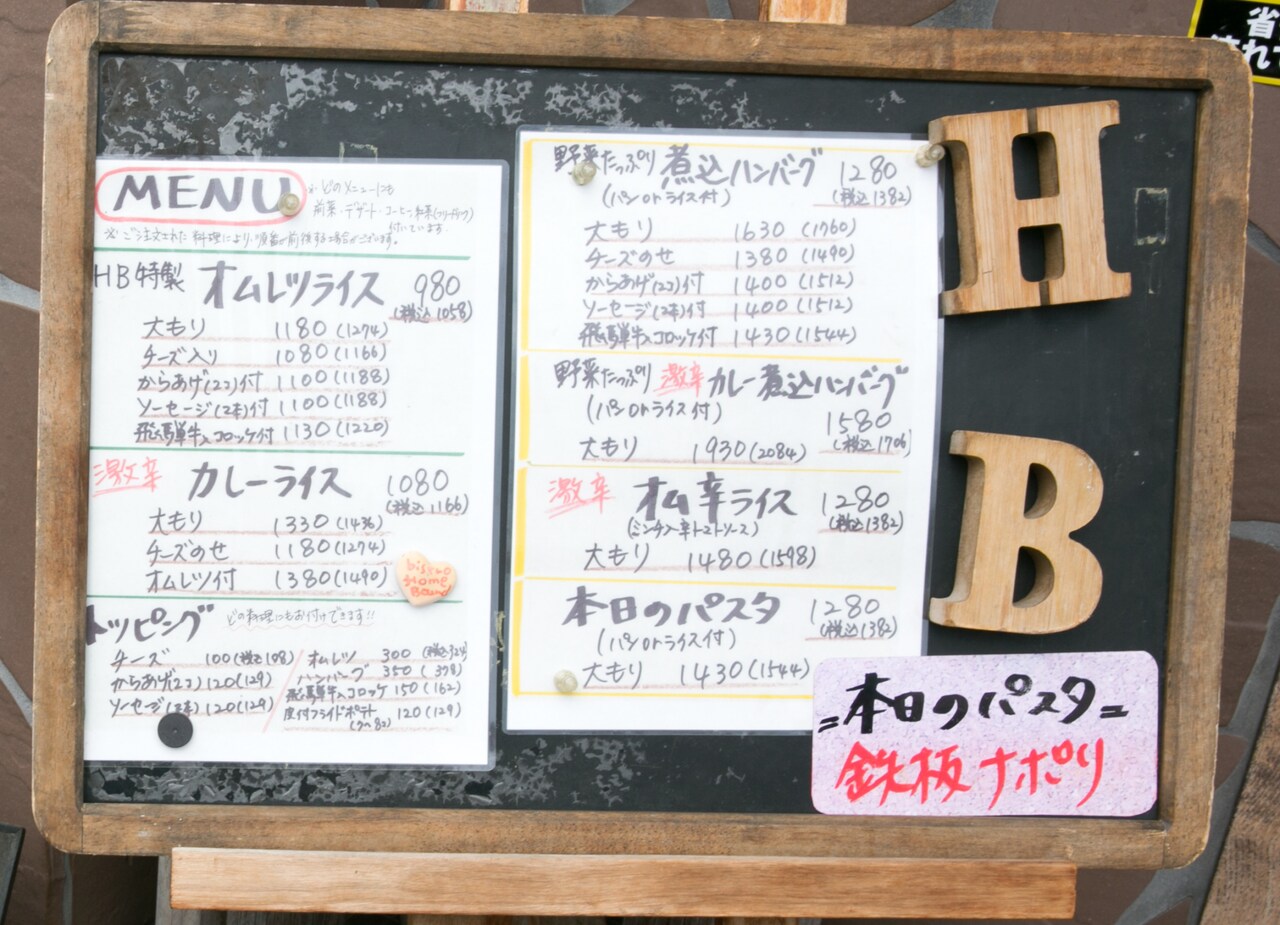 MENU
※どのメニューにも
前菜・デザート・コーヒー or 紅茶(フリードリンク)
付いています。
※ご注文された料理により、順番が前後する場合がございます。
HB特製 オムレツライス 980
(税込1058)
大もり 1180(1274)
チーズ入り 1080(1166)
からあげ(2コ)付 1100(1188)
ソーセージ(2本)付 1100(1188)
飛騨牛入コロッケ付 1130(1220)
激辛 カレーライス 1080
(税込1166)
大もり 1330(1436)
チーズのせ 1180(1274)
オムレツ付 1380(1490)
bistro
Home
Bound
トッピング どの料理にもお付けできます!!
チーズ 100(税込108)
からあげ(2コ) 120(129)
ソーセージ(2本) 120(129)
オムレツ 300(税込324)
ハンバーグ 350(378)
飛騨牛入コロッケ 150(162)
皮付フライドポテト 120(129)
野菜たっぷり 煮込ハンバーグ 1280
(パン or ライス付) (税込1382)
大もり 1630(1760)
チーズのせ 1380(1490)
からあげ(2コ)付 1400(1512)
ソーセージ(2本)付 1400(1512)
飛騨牛入コロッケ付 1430(1544)
野菜たっぷり 激辛 カレー煮込ハンバーグ
(パン or ライス付) 1580
(税込1706)
大もり 1930(2084)
激辛 オム辛ライス 1280
(ミンチ入辛トマトソース) (税込1382)
大もり 1480(1598)
本日のパスタ 1280
(パン or ライス付) (税込1382)
大もり 1430(1544)
H
B
=本日のパスタ=
鉄板ナポリ
省